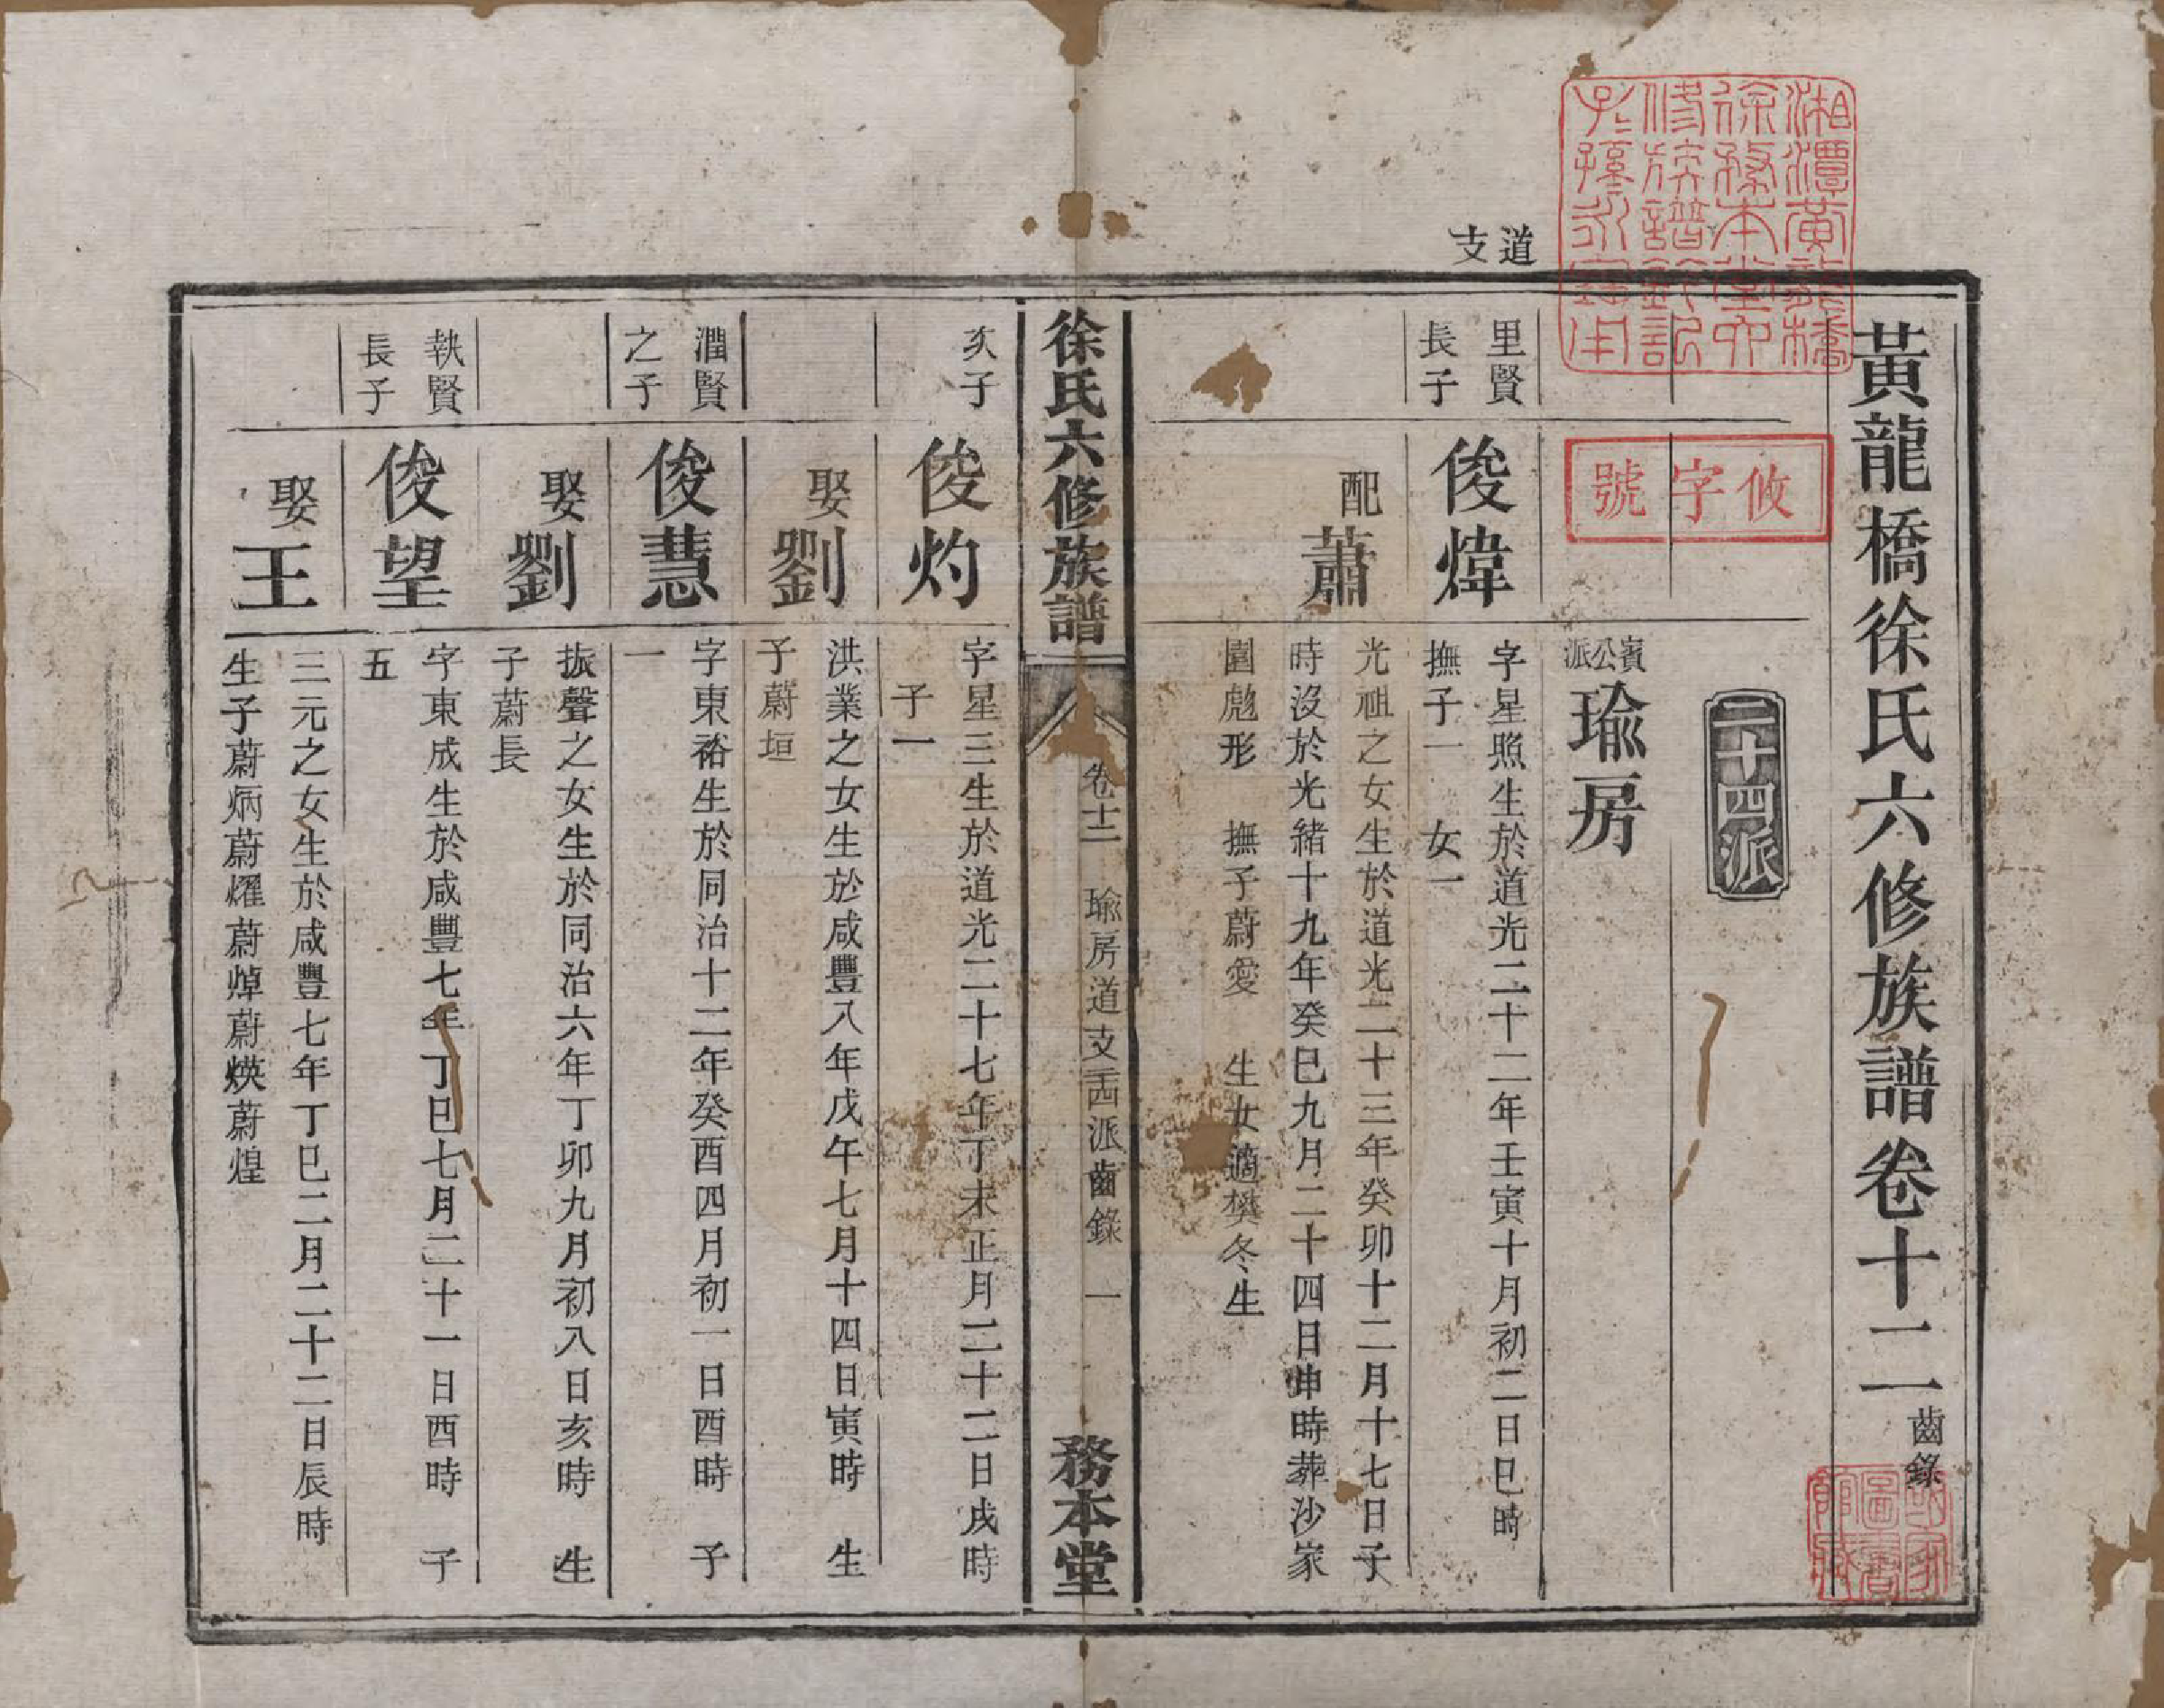 黃龍橋徐氏六修族譜卷十二齒錄
湘潭黃龍橋
徐務本堂四
修族譜鈐記
子孫永寶用
攸字號
二十四派
賓公派瑜房
道支
里賢長子
俊煒
字星照生於道光二十二年壬寅十月初二日巳時
撫子一 女一
配蕭
光祖之女生於道光二十三年癸卯十二月十七日子
時沒於光緒十九年癸巳九月二十四日申時葬沙家
園彪形 撫子蔚愛 生女適樊冬生
徐氏六修族譜 卷十二 瑜房道支二十四派齒錄 一 務本堂
次子
俊灼
字星三生於道光二十七年丁未正月二十二日戌時
子一
娶劉
洪業之女生於咸豐八年戊午七月十四日寅時 生
子蔚垣
潤賢之子
俊慧
字東裕生於同治十二年癸酉四月初一日酉時 子
一
娶劉
振聲之女生於同治六年丁卯九月初八日亥時 生
子蔚長
執賢長子
俊望
字東成生於咸豐七年丁巳七月二十一日酉時 子
五
娶王
三元之女生於咸豐七年丁巳二月二十二日辰時
生子蔚炳蔚燿蔚焯蔚煐蔚煌
國家圖書館藏